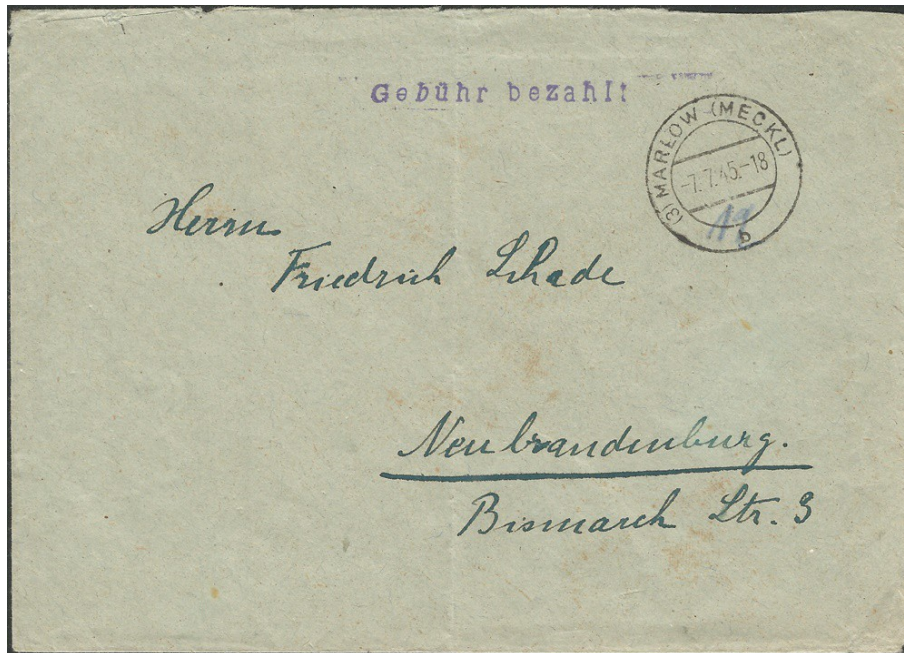 Gebühr bezahlt
(3) MARLOW (MECKL)
-7.7.45.-18
b
Herrn
Friedrich Schade
Neubrandenburg.
Bismarck Str. 3